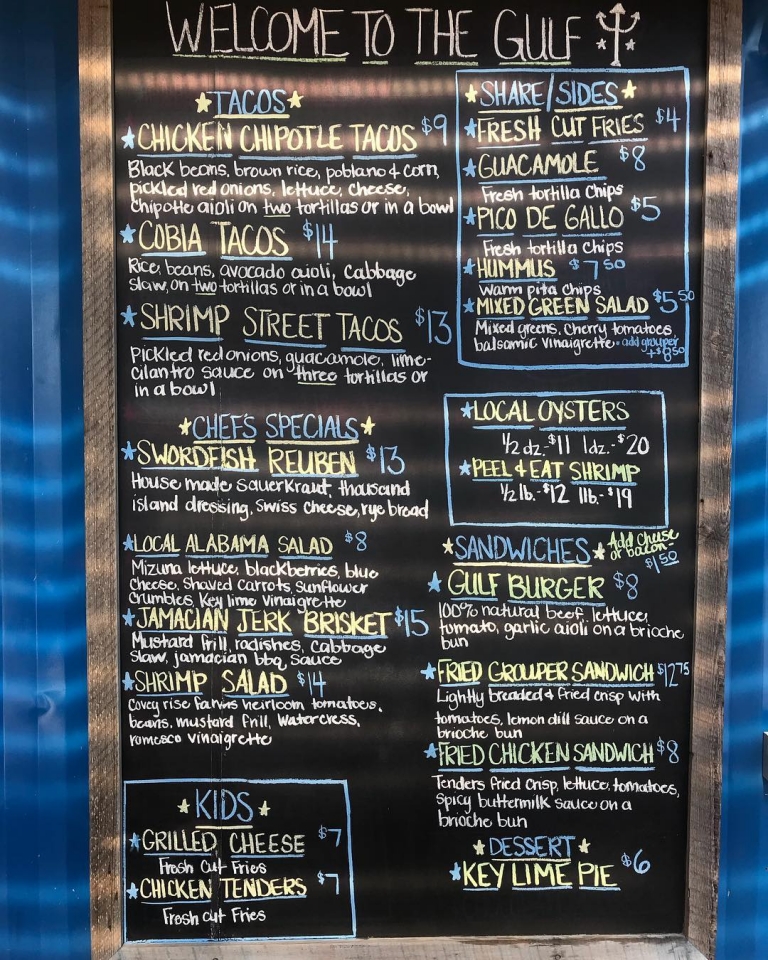 WELCOME TO THE GULF
TACOS
CHICKEN CHIPOTLE TACOS $9
Black beans, brown rice, poblano & corn,
pickled red onions, lettuce, cheese,
chipotle aioli on two tortillas or in a bowl
COBIA TACOS $14
Rice, beans, avocado aioli, Cabbage
slaw, on two tortillas or in a bowl
SHRIMP STREET TACOS $13
Pickled red onions, guacamole, lime-
cilantro sauce on three tortillas or
in a bowl
CHEF'S SPECIALS
SWORDFISH REUBEN $13
House made sauerkraut, thousand
island dressing, swiss cheese, rye bread
LOCAL ALABAMA SALAD $8
Mizuna lettuce, blackberries, blue
cheese, shaved carrots, sunflower
crumbles, Key lime vinaigrette
JAMACIAN JERK BRISKET $15
Mustard frill, radishes, Cabbage
slaw, jamacian bbq sauce
SHRIMP SALAD $14
Covey rise farms heirloom tomatoes,
beans, mustard frill, watercress,
romesco vinaigrette
KIDS
GRILLED CHEESE $7
Fresh Cut Fries
CHICKEN TENDERS $7
Fresh cut Fries
SHARE/SIDES
FRESH CUT FRIES $4
GUACAMOLE $8
Fresh tortilla chips
PICO DE GALLO $5
Fresh tortilla chips
HUMMUS $7.50
warm pita chips
MIXED GREEN SALAD $5.50
Mixed greens, cherry tomatoes,
balsamic vinaigrette • add grouper
+$8.50
LOCAL OYSTERS
1/2 dz.-$11 1dz.-$20
PEEL & EAT SHRIMP
1/2 lb.-$12 1lb.-$19
SANDWICHES
Add cheese
or bacon-
$1.50
GULF BURGER $8
100% natural beef, lettuce,
tomato, garlic aioli on a brioche
bun
FRIED GROUPER SANDWICH $12.75
Lightly breaded & fried crisp with
tomatoes, lemon dill sauce on a
brioche bun
FRIED CHICKEN SANDWICH $8
Tenders fried crisp, lettuce, tomatoes,
spicy buttermilk sauce on a
brioche bun
DESSERT
KEY LIME PIE $6